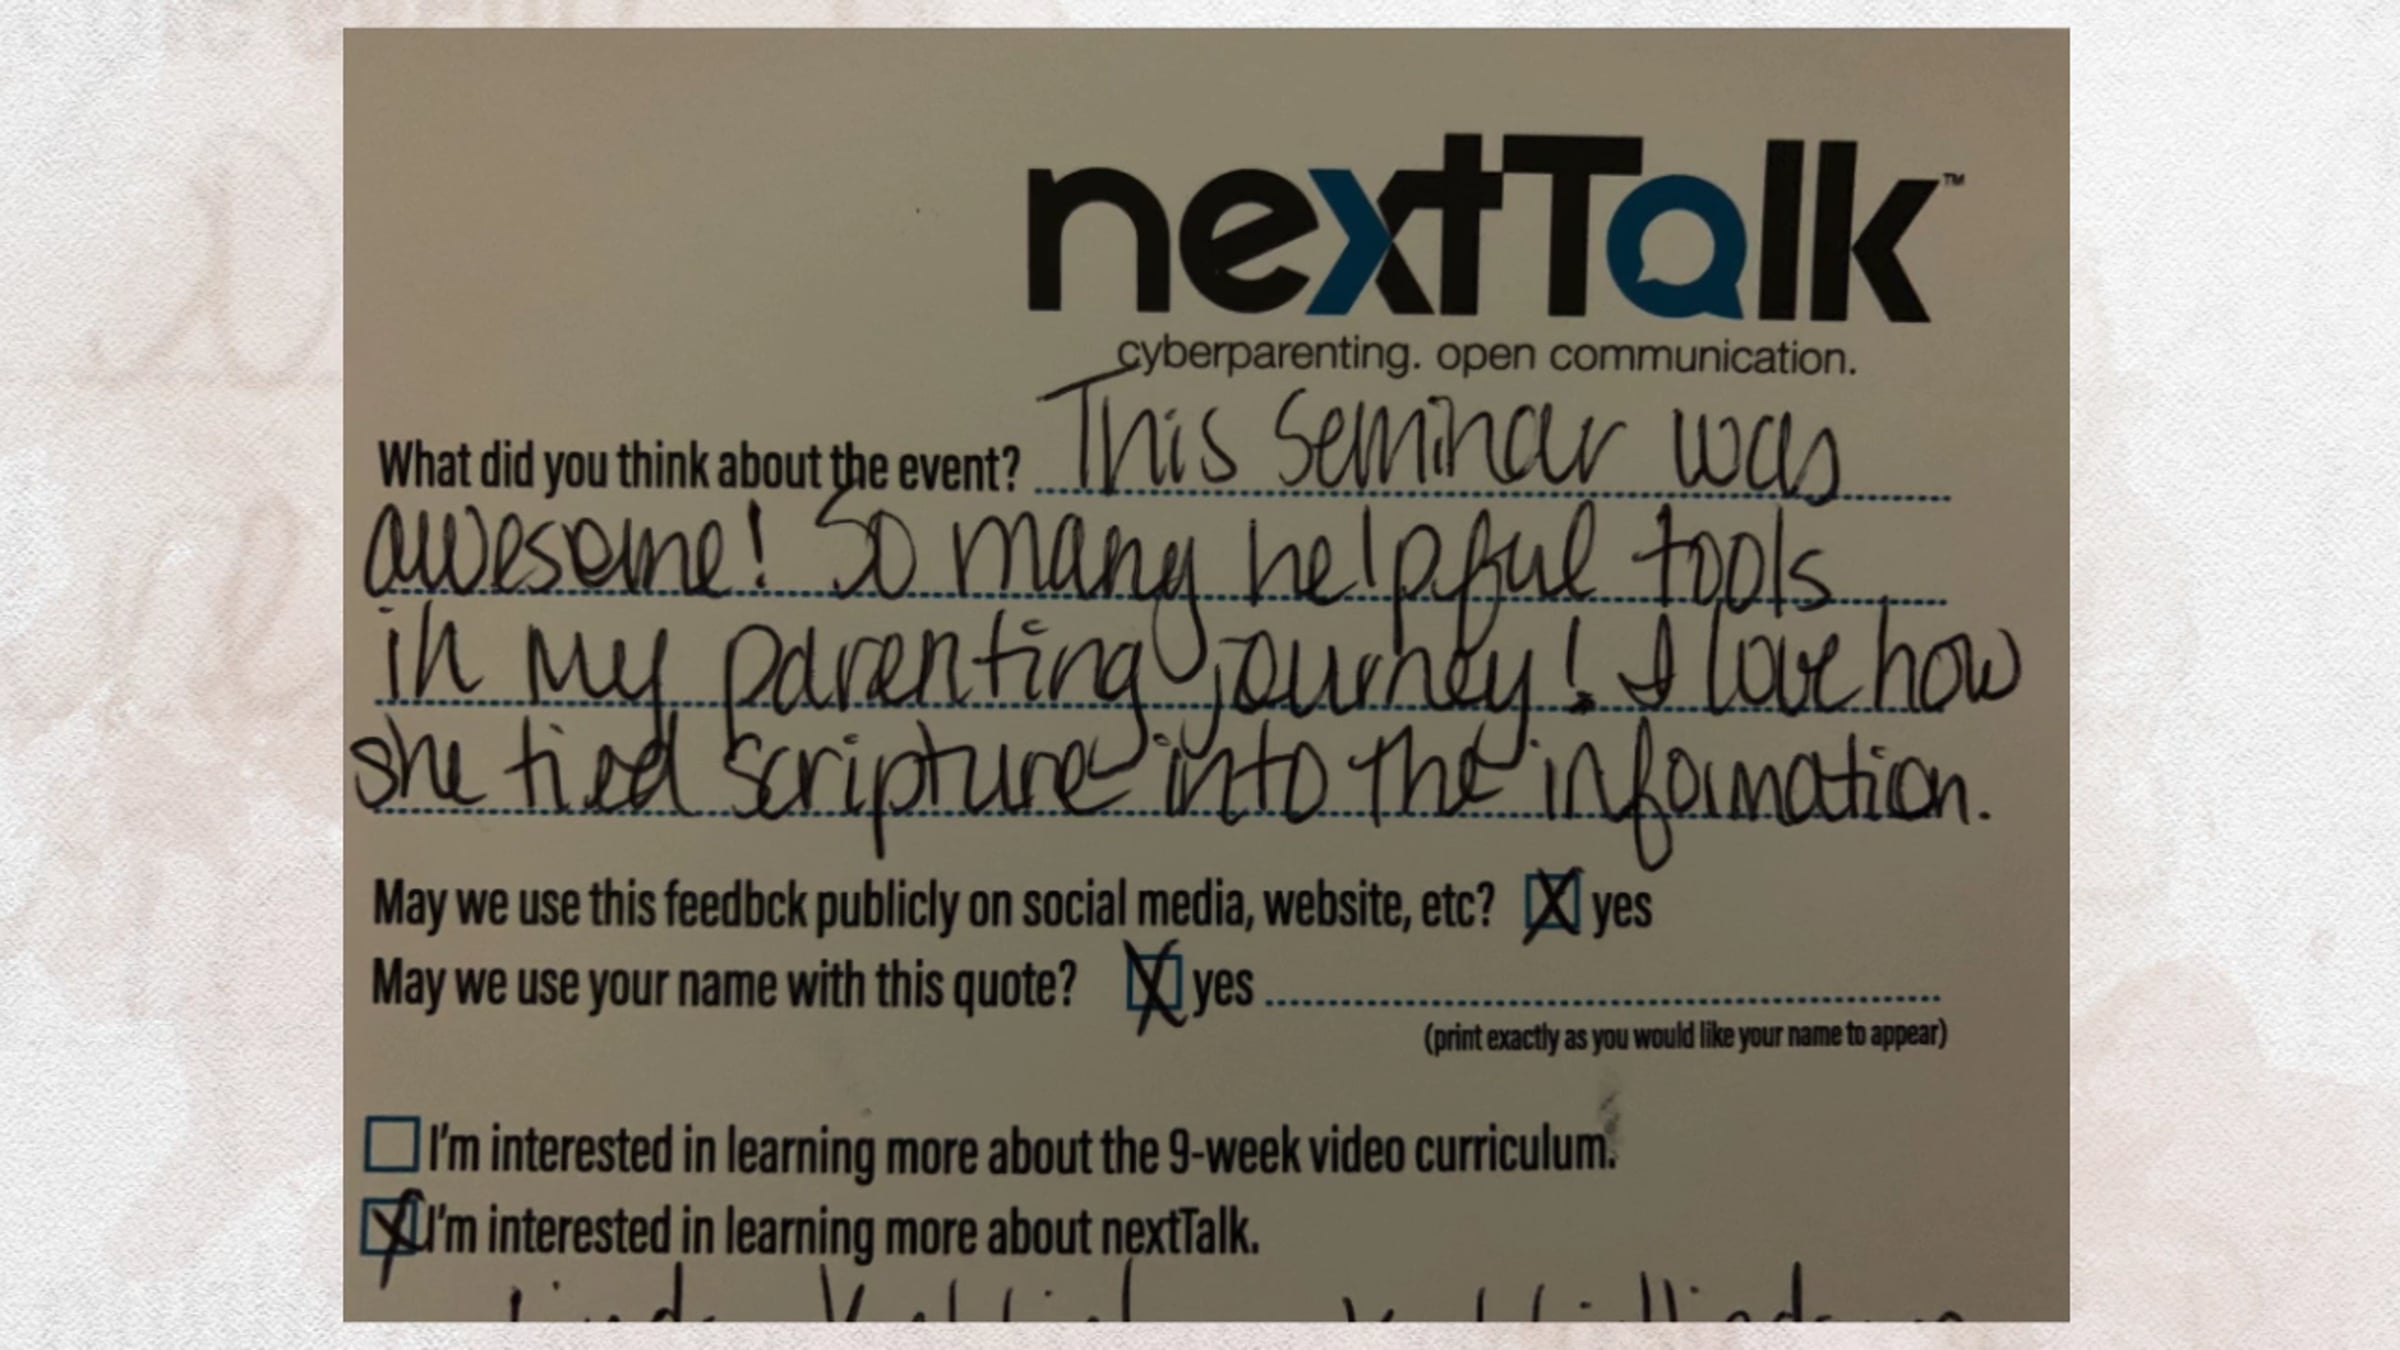 nextTalk™
cyberparenting. open communication.
What did you think about the event? This seminar was
awesome! So many helpful tools
in my parenting journey! I love how
she tied scripture into the information.
May we use this feedbck publicly on social media, website, etc? yes
May we use your name with this quote? yes
(print exactly as you would like your name to appear)
I'm interested in learning more about the 9-week video curriculum.
I'm interested in learning more about nextTalk.